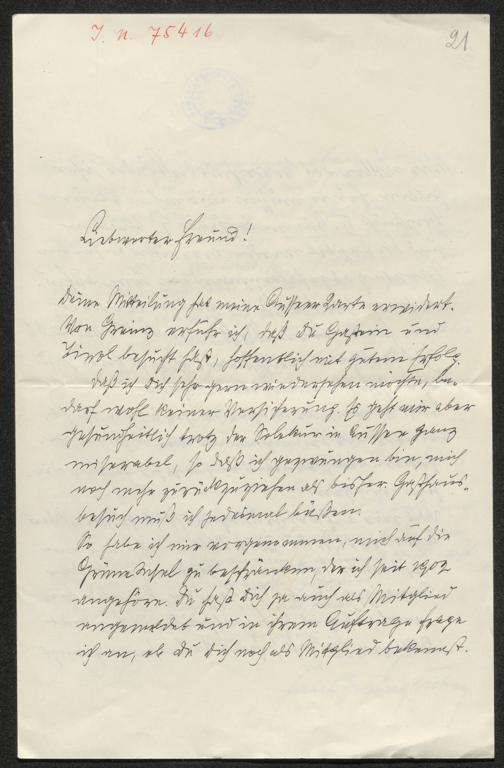 I. N. 75416
21
Liebwerter Freund!
Deine Mitteilung hat meine Ausseer Karte erwidert.
Von Greinz erfuhr ich, daß du Gastein und
Tirol besucht hast, hoffentlich mit gutem Erfolg.
Daß ich dich sehr gern wiedersehen möchte, be-
darf wohl keiner Versicherung. Es geht mir aber
gesundheitlich trotz der Solekur in Aussee ganz
miserabel, so daß ich gezwungen bin, mich
noch mehr zurückzuziehen als bisher. Gasthaus-
besuch muß ich jedesmal büßen.
So habe ich mir vorgenommen, mich auf die
Grüne Insel zu beschränken, der ich seit 1902
angehöre. Du hast Dich ja auch als Mitglied
angemeldet und in ihrem Auftrage frage
ich an, ob du dich noch als Mitglied bekennst.